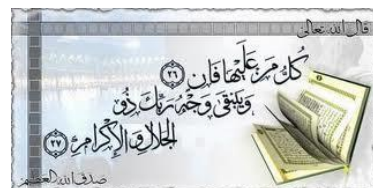 قال الله تعالى
كُلُّ مَنْ عَلَيْهَا فَانٍ ﴿٢٦﴾
وَيَبْقَى وَجْهُ رَبِّكَ ذُو
الْجَلَالِ وَالْإِكْرَامِ ﴿٢٧﴾
صدق الله العظيم